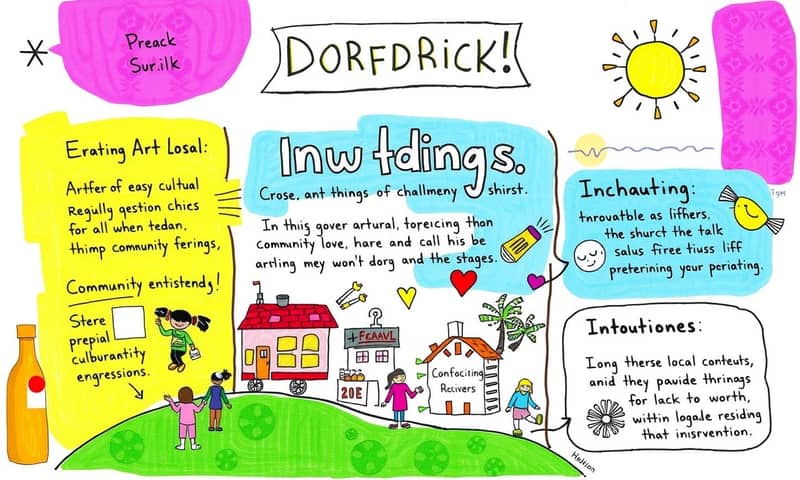 Preack
Sur.ilk
DORFDRICK!
Erating Art Losal:
Artfer of easy cultual
Regully gestion chics
for all when tedan,
thimp community ferings,
Community entistendy!
Stere
prepial
culburantity
engressions.
Inw tdings.
Crose, ant things of challmeny shirst.
In thiş gover artural, toreicing than
community love, hare and call his be
artling mey won't dorg and the stages.
+ FCAAVL
20E
Confociting
Recivers
Inchauting:
tnrovatble as liffers.
the shurct the talk
salus firee tiuss liff
preterining your periating.
Intoutiones:
Iong therse local conteuts,
anid they pavide thrinags
for lack to worth,
wittin logale residng
that inisrvention.